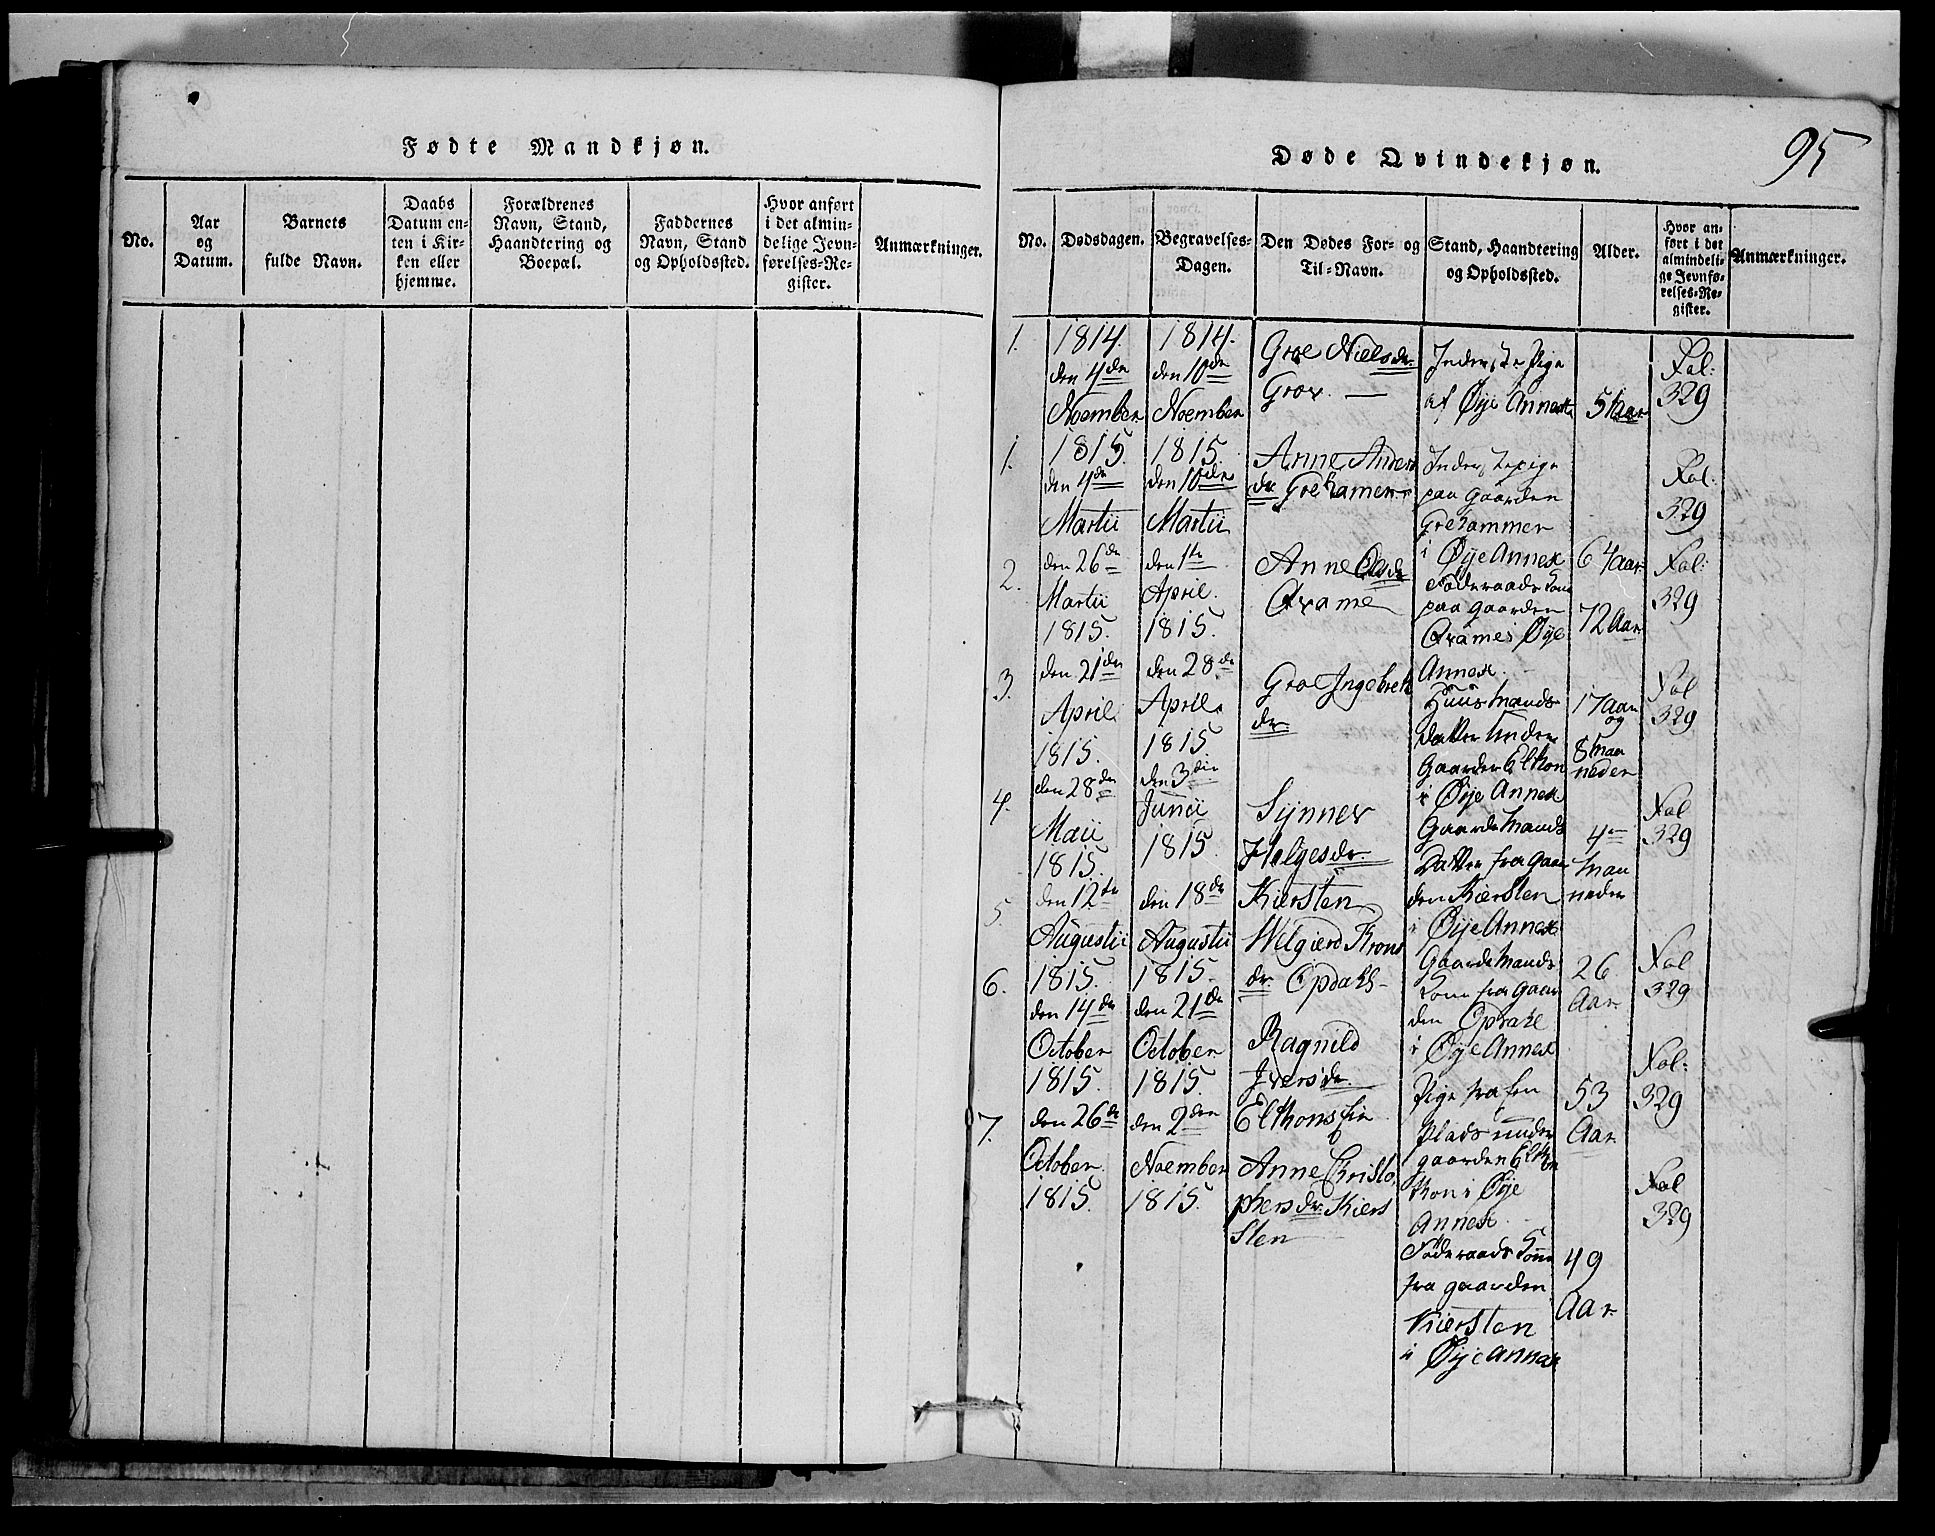 Fødte Mandkjøn.
No.
Aar
og
Datum.
Barnets
fulde Navn.
Daabs
Datum en-
ten i Kir-
ken eller
hjemme.
Forældrenes
Navn, Stand,
Haandtering og
Boepæl.
Faddernes
Navn, Stand
og Opholdssted.
Hvor anført
i det almin-
delige Jevn-
førelses-Re-
gister.
Anmærkninger.
Døde Qvindekjøn.
95
No.
Dødsdagen.
Begravelses-
Dagen.
Den Dødes For- og
Til-Navn.
Stand, Haandtering
og Opholdssted.
Alder.
Hvor an-
ført i det
almindeli-
ge Jevnfø-
relses-Re-
gister.
Anmærkninger.
1.
1814.
den 4de
Noember
1814.
den 10de
Noember
Groe Nielsdr.
Grov.
Inderste Pige
af Øye Annex
51 Aar
Fol:
329
1.
1815.
den 4de
Martii
1815.
den 10de
Martii
Anne Anders
dr Grehamer
Inderstepige
paa gaarden
Grehammer
i Øye Annex
64 Aar
Fol:
329
2.
den 26de
Martii
1815.
den 1te
April.
1815.
Anne Olsdr
Qvame
Føderaads Kone
paa gaarden
Qvame i Øye
Annex
72 Aar
Fol:
329
3.
den 21de
April
1815.
den 28de
April.
1815
Groe Ingebrets
dr
Huusmands
datter under
Gaarden Elthon
i Øye Annex
17 Aar
og
8 maa
neder
Fol
329
4.
den 28de
Maii
1815.
den 3die
Junii
1815.
Synnev
Helgesdr.
Kiersten
Gaardemands
Datter fra gaar
den Kiersten
i Øye Annex
4re
maa
neder
Fol
329
5.
den 12te
Augustii
1815.
den 18de
Augustii
1815.
Wilgierd Trons
dr. Opdahl
Gaardemands
Kone fra gaar
den Opdahl
i Øye Annex
26
Aar.
Fol
329
6.
den 14de
October
1815.
den 21de
October
1815.
Ragnild
Iversdr.
Elthonsfie
Pige fra en
Plads under
gaarden Elthon
i Øye
Annex
53
Aar
Fol:
329
7.
den 26de
October.
1815.
den 2den
Noember
1815.
Anne Christo
phersdr. Kiers
sten
Føderaads Kone
fra gaarden
Kiersten
i Øye Annex
49
Aar.
Fol
329